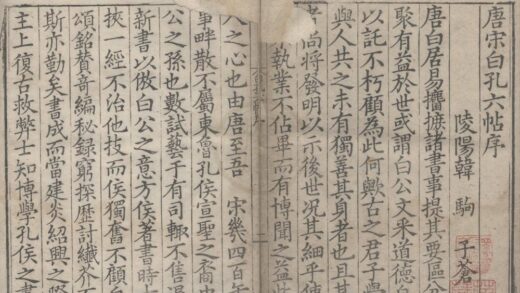 唐宋白孔六帖序
陵陽韓 駒 子蒼
唐白居易攟摭諸書事提其要區分
聚有益於世或謂白公文采道德
以託不朽顧為此何歟古之君子
與人共之未有獨善其身者也且其
者尚將發明以示後世況其細乎使
執業不佔畢而有博聞之益此
人之心也由唐至吾 宋幾四百年
事畔散不屬東魯孔侯宣聖之裔中
公之孫也數試藝于有司輒不售退
新書以倣白公之意方侯著書時
挾一經不治他技而侯獨奮不顧
頌銘贊奇編秘録窮探歷討纖芥不
斯亦勤矣書成而當建炎紹興之際
主上復古救弊士知博學孔侯之書